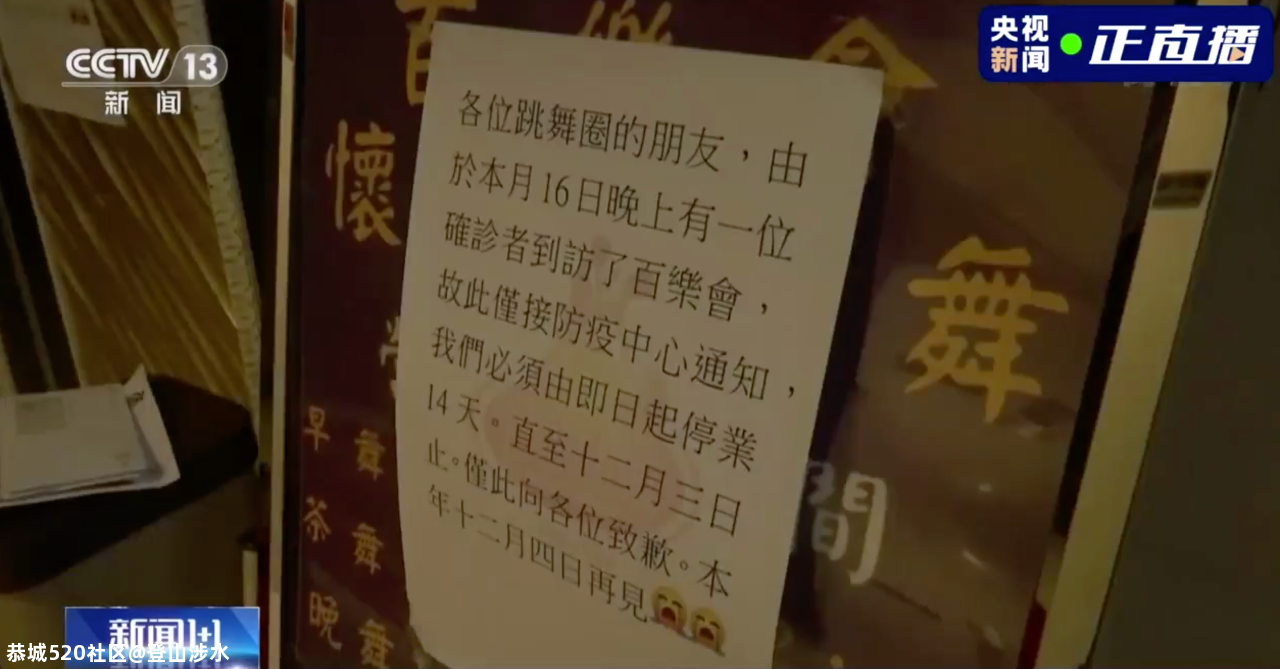 CCTV 13
新闻
央视
新闻
正直播
各位跳舞圈的朋友，由
於本月16日晚上有一位
確診者到訪了百樂會，
故此僅接防疫中心通知，
我們必須由即日起停業
14天。直至十二月三日
止。僅此向各位致歉。本
年十二月四日再見😭😭
百樂會
懷
舞
早舞
茶舞
晚舞
間
新闻1+1
恭城520社区@登山涉水